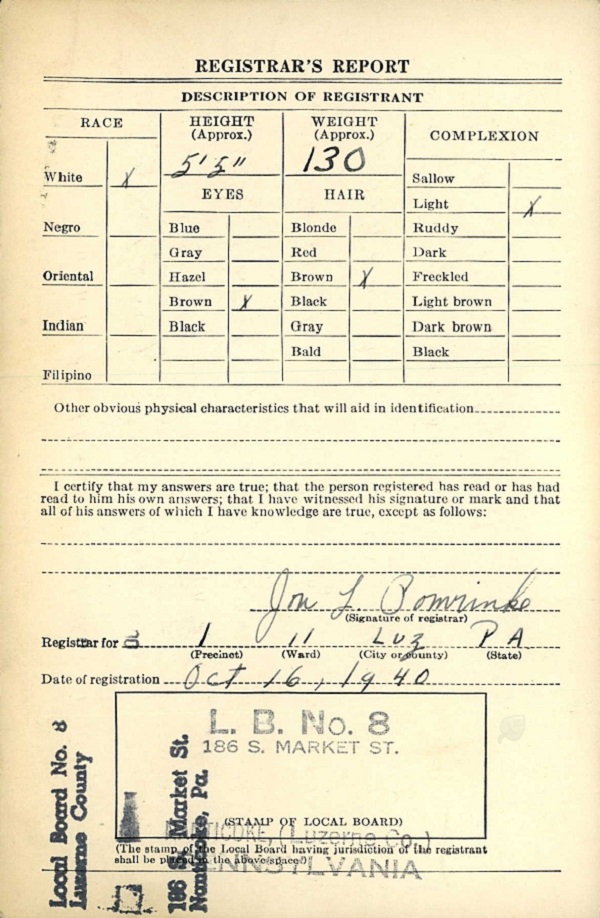 REGISTRAR'S REPORT
DESCRIPTION OF REGISTRANT
RACE
HEIGHT
(Approx.)
WEIGHT
(Approx.)
COMPLEXION
5' 5"
130
White X
EYES
HAIR
Sallow
Light X
Negro
Blue
Blonde
Ruddy
Gray
Red
Dark
Oriental
Hazel
Brown X
Freckled
Brown X
Black
Light brown
Indian
Black
Gray
Dark brown
Bald
Black
Filipino
Other obvious physical characteristics that will aid in identification
I certify that my answers are true; that the person registered has read or has had
read to him his own answers; that I have witnessed his signature or mark and that
all of his answers of which I have knowledge are true, except as follows:
L.
(Signature of registrar)
Registrar for 1 11 Luz PA
(Precinct) (Ward) (City or county) (State)
Date of registration Oct 16, 1940
L. B. No. 8
186 S. MARKET ST.
(STAMP OF LOCAL BOARD)
NANTICOKE, (Luzerne Co.)
(The stamp of the Local Board having jurisdiction of the registrant
shall be placed in the above space.)
PENNSYLVANIA
Local Board No. 8
Luzerne County
186 S. Market St.
Nanticoke, Pa.